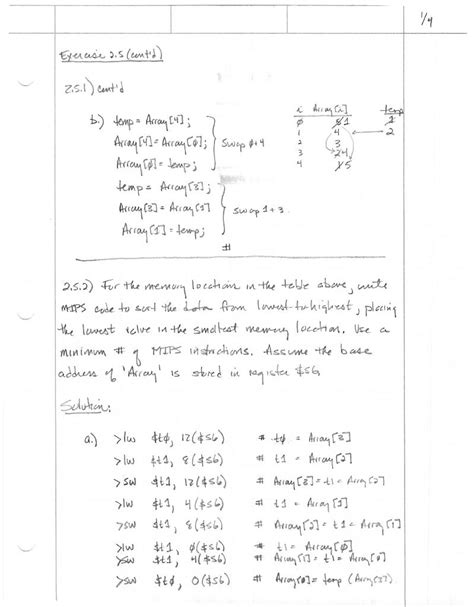 1/4
Exercise 2.5 (cont'd)
2.5.1) cont'd
b.) temp = Array[4];
Array[4] = Array[0];
Array[0] = temp;
swap 0+4
temp = Array[3];
Array[3] = Array[1]
Array[1] = temp;
swap 1+3
#
i Array[i] temp
0 5 1 1
1 4 2
2 3
3 2 4
4 1 5
2.5.2) For the memory location in the table above, write
MIPS code to sort the data from lowest-to-highest, placing
the lowest value in the smallest memory location. Use a
minimum # of MIPS instructions. Assume the base
address of 'Array' is stored in register $s6
Solution:
a.) >lw $t0, 12($s6) # t0 = Array[3]
>lw $t1, 8($s6) # t1 = Array[2]
>sw $t1, 12($s6) # Array[3] = t1 = Array[2]
>lw $t1, 4($s6) # t1 = Array[1]
>sw $t1, 8($s6) # Array[2] = t1 = Array[1]
>lw $t1, 0($s6) # t1 = Array[0]
>sw $t1, 4($s6) # Array[1] = t1 = Array[0]
>sw $t0, 0($s6) # Array[0] = temp (Array[3]).